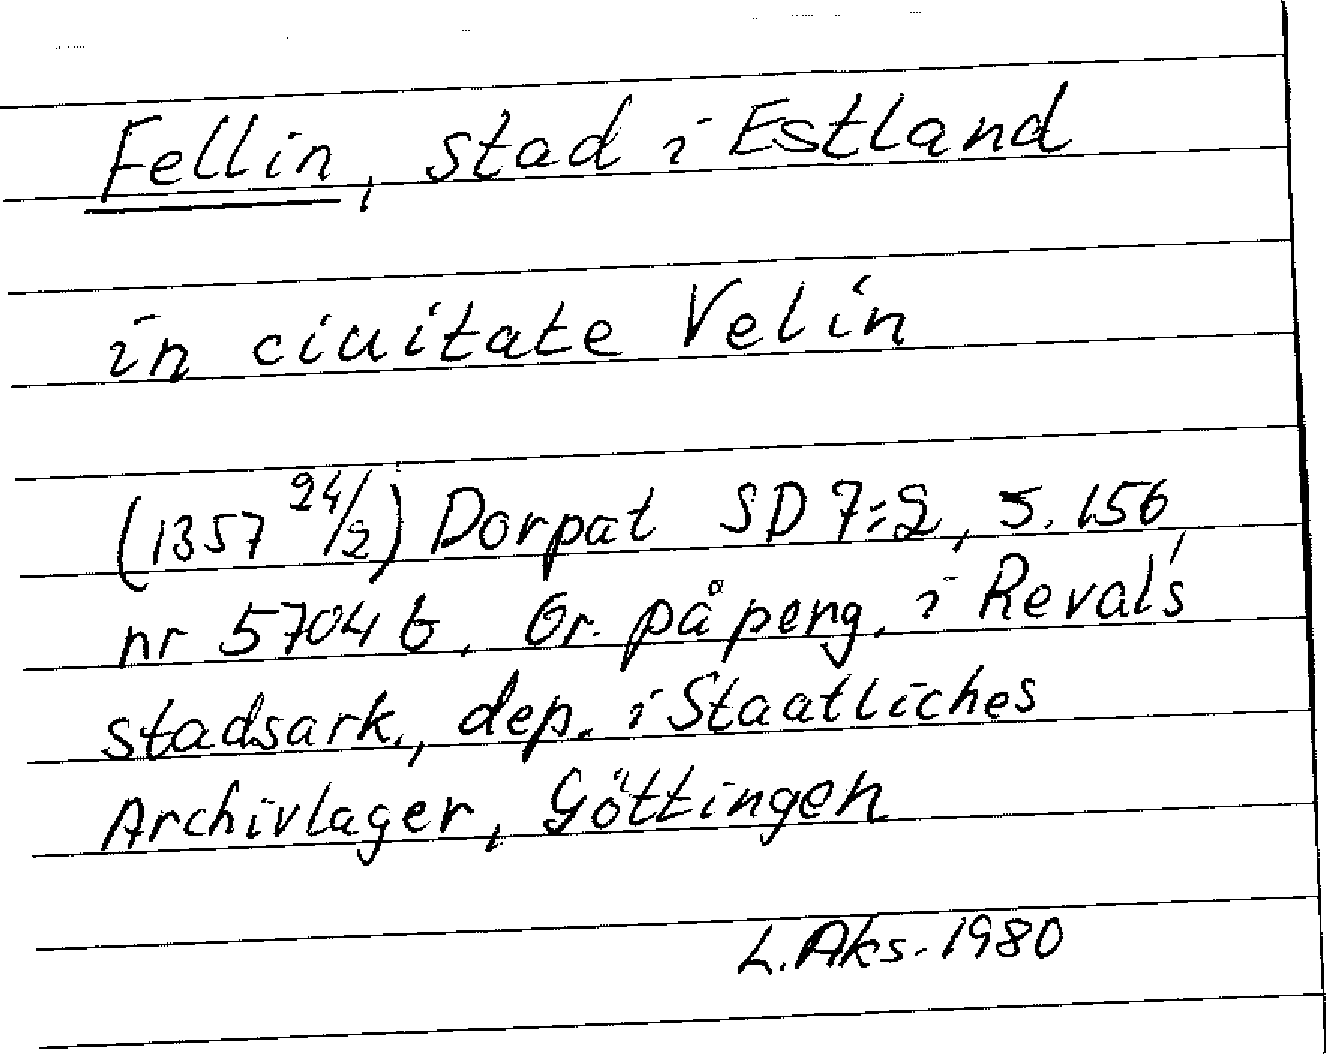 Fellin, stad i Estland
in ciuitate Velin
(1357 24/2) Dorpat SD 7:2, s. 156,
nr 5704 b. Or. på perg. i Revals
stadsark., dep. i Staatliches
Archivlager, Göttingen
L. Aks. 1980